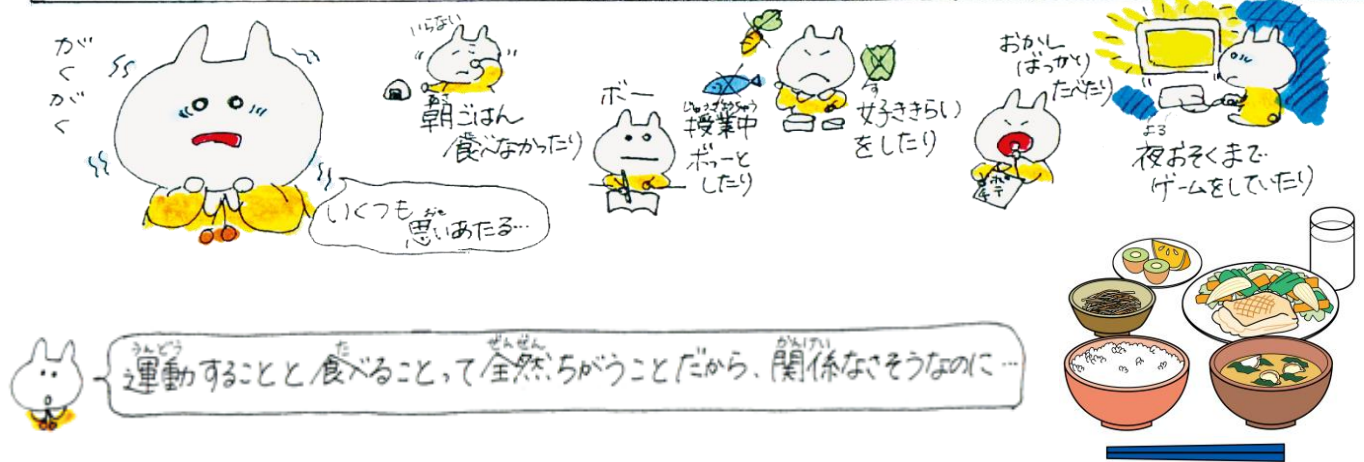 がく
がく
いらない
朝ごはん
食べなかったり
ボー
授業中
ボーっと
したり
好ききらい
をしたり
おかし
ばっかり
たべたり
ポテ
夜おそくまで
ゲームをしていたり
いくつも
思いあたる…
運動することと食べることって全然ちがうことだから、関係なさそうなのに…